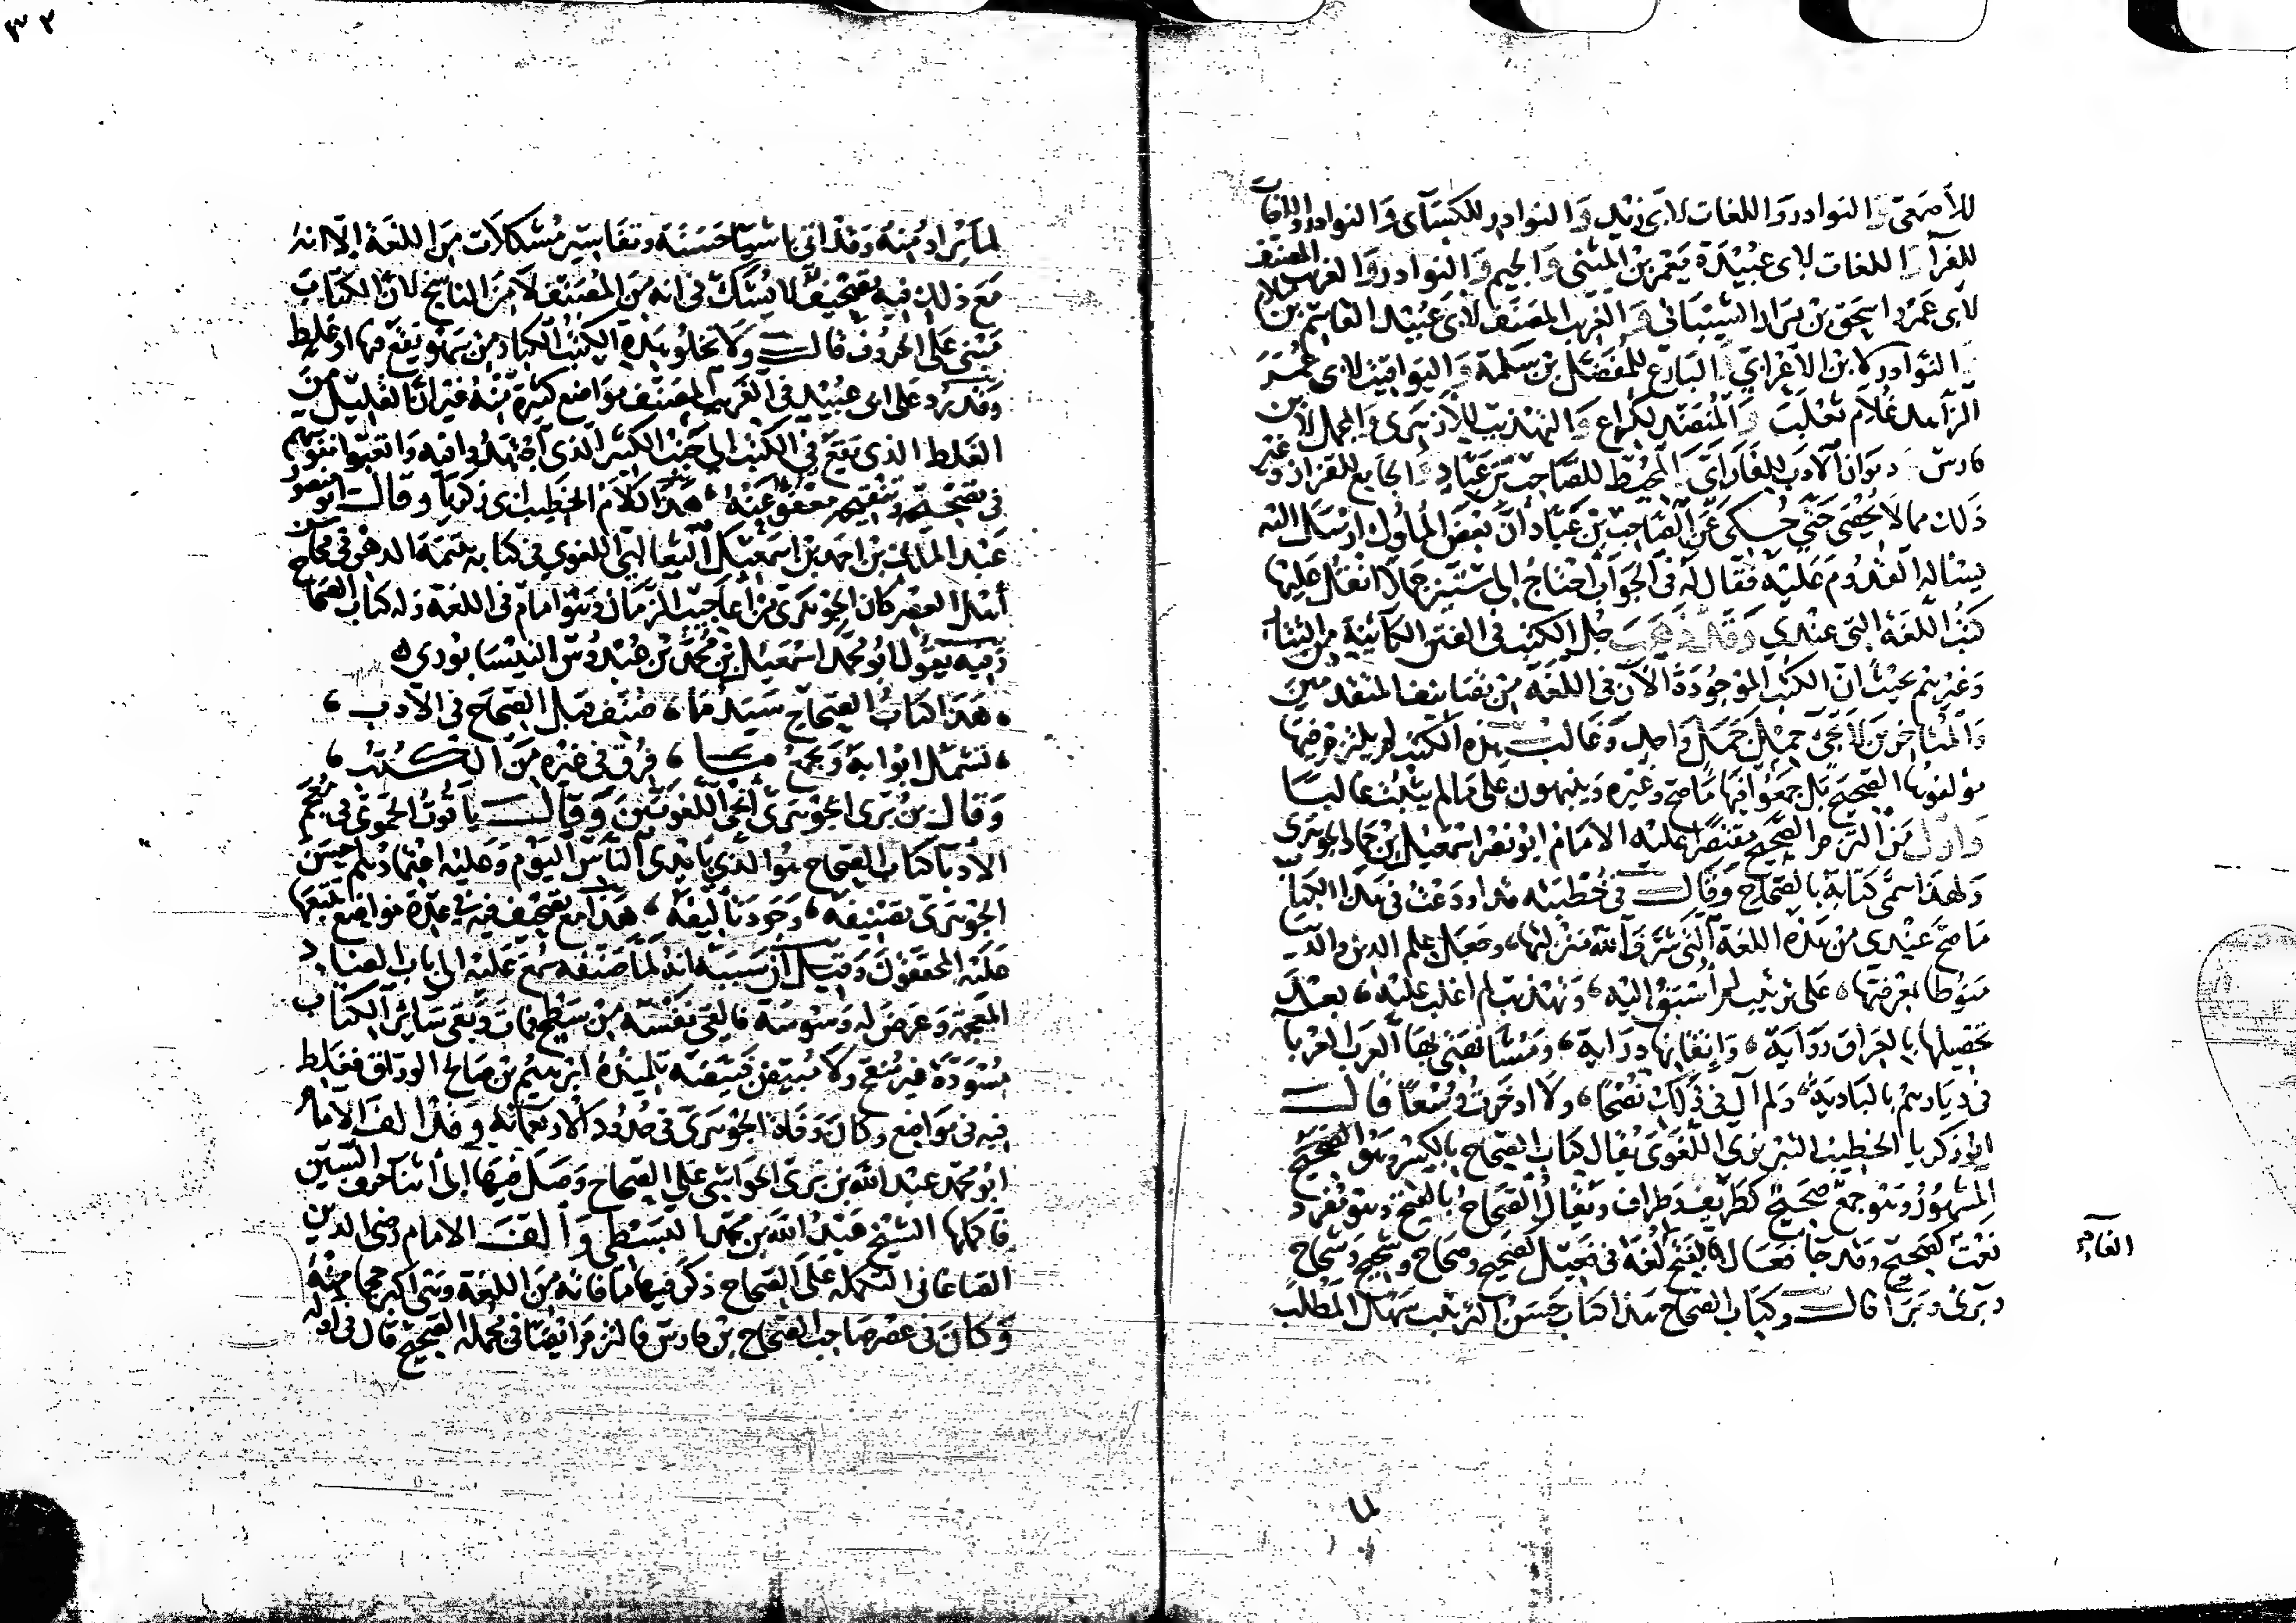 للأصمعي والنوادر واللغات لابى زيد والنوادر للكسآى والنوادر واللغات
للفرآ واللغات لابى عبيدة معمر بن المثنى والجيم والنوادر والغريب المصنف
لابى عمرو اسحق بن مرار الشيبانى والغريب المصنف لابى عبيد القاسم بن سلام
والنوادر لابن الاعرابي والبارع للمفضل بن سلمة واليواقيت لابى عمر
الزاهد غلام ثعلب والمنضد لكراع والتهذيب للأزهرى والمجمل لابن
فارس وديوان الادب للفارابي والمحيط للصاحب بن عباد والجامع للقزاز وغير
ذلك مما لا يحصى حتى حكى عن الصاحب بن عباد أن بعض الملوك ارسل اليه
يساله القدوم عليه فقال له في الجواب احتاج الى ستين جملا انقل عليها
كتب اللغة التي عندي وقد ذهب جل الكتب في الفتن الكائنة من التتار
وغيرهم بحيث ان الكتب الموجودة الآن في اللغة من تصانيف المتقدمين
والمتاخرين لا تجئ حمل جمل واحد وغالب هذه الكتب لم يلتزم فيها
مؤلفوها الصحيح بل جمعوا فيها ما صح وغيره وينبهون على ما لم يثبت غالبا
واول من التزم الصحيح مقتصرا عليه الامام ابو نصر اسمعيل بن حماد الجوهرى
ولهذا سمى كتابه بالصحاح وقال في خطبته قد اودعت في هذا الكتاب
ما صح عندى من هذه اللغة التي شرف الله منزلتها، وجعل علم الدين والدنيا
منوطا بمعرفتها، على ترتيب لم أسبق اليه، وتهذيب لم اغلب عليه، بعد
تحصيلها بالعراق رواية، وإتقانها دراية، ومشافهتي بها العرب العربا
في ديارهم بالبادية، ولم آل في ذلك نصحا، ولا ادخرت وسعا قال
ابو زكريا الخطيب التبريزي اللغوى يقال كتاب الصحاح بالكسر وهو الصحيح
المشهور وهو جمع صحيح كظريف وظراف ويقال الصحاح بالفتح وهو مفرد
نعت كصحيح وقد جا فعال بالفتح لغة في فعيل كصحيح وصحاح وشحيح وشحاح
وبرى وبرآ قال وكتاب الصحاح هذا كتاب حسن الترتيب سهل المطلب
لما
لما يراد منه وقد اتى باشيا حسنة وتفاسير مشكلات من اللغة الا انه
مع ذلك فيه تصحيف لا يشك في انه من المصنف لا من الناسخ لان الكتاب
مبنى على الحروف قال ولا تخلو هذه الكتب الكبار من سهو يقع فيها او غلط
وقد رد على ابى عبيد في الغريب المصنف مواضع كثيرة منه غير ان القليل من
الغلط الذى يقع في الكتب الى جنب الكثير الذى اجتهدوا فيه واتعبوا نفوسهم
في تصحيحه وتنقيحه معفو عنه، هذا كلام الخطيب ابى زكريا وقال ابو منصور
عبد الملك بن احمد بن اسمعيل الثعالبي اللغوي في كتابه يتيمة الدهر في محاسن
أهل العصر كان الجوهرى من أعاجيب الزمان وهو امام في اللغة وله كتاب الصحاح
وفيه يقول ابو محمد اسمعيل بن محمد بن عبدوس النيسابوري
، هذا كتاب الصحاح سيد ما ، صنف قبل الصحاح في الادب ،
، تشمل ابوابه وتجمع ما ، فرق في غيره من الكتب ،
وقال بن برى الجوهرى أنحى اللغويين وقال ياقوت الحموى في معجم
الأدبا كتاب الصحاح هو الذي بايدى الناس اليوم وعليه اعتمادهم احسن
الجوهرى تصنيفه، وجود تأليفه، هذا مع تصحيف فيه في عدة مواضع تتبعها
عليه المحققون وقيل ان سببه انه لما صنفه سمع عليه الى باب الضاد
المعجمة وعرض له وسوسة فالقى نفسه من سطح فمات وبقى سائر الكتاب
مسودة غير منقح ولا مبيض فبيضه تلميذه ابرهيم بن صالح الوراق فغلط
فيه في مواضع وكان وفاة الجوهرى في حدود الاربعمائة وقد الف الامام
ابو محمد عبد الله بن برى الحواشى على الصحاح وصل فيها إلى أثنا حرف الشين
فاكملها الشيخ عبد الله بن محمد البسطي وألف الامام رضى الدين
الصاغانى التكملة على الصحاح ذكر فيها ما فاته من اللغة وهى اكبر حجما منه
وكان في عصر صاحب الصحاح بن فارس فالتزم ايضا في مجمله الصحيح قال في اوله